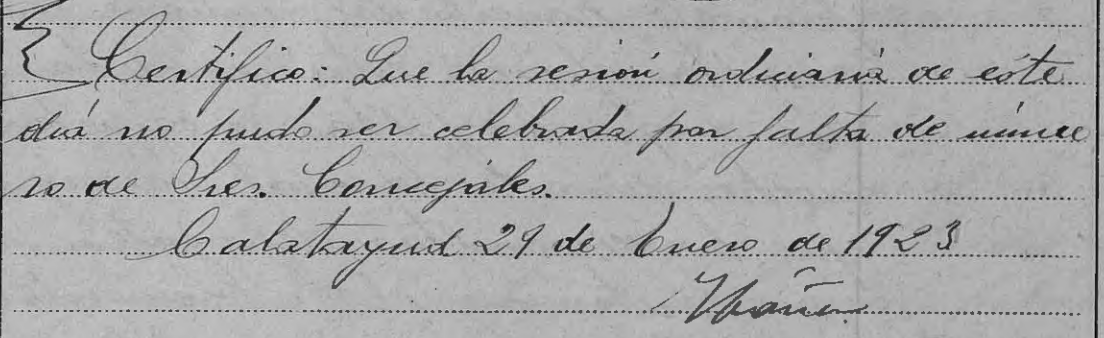 Certifico: Que la sesión ordinaria de este
día no pudo ser celebrada por falta de núme
ro de Sres. Concejales.
Calatayud 29 de Enero de 1923
Ybáñez